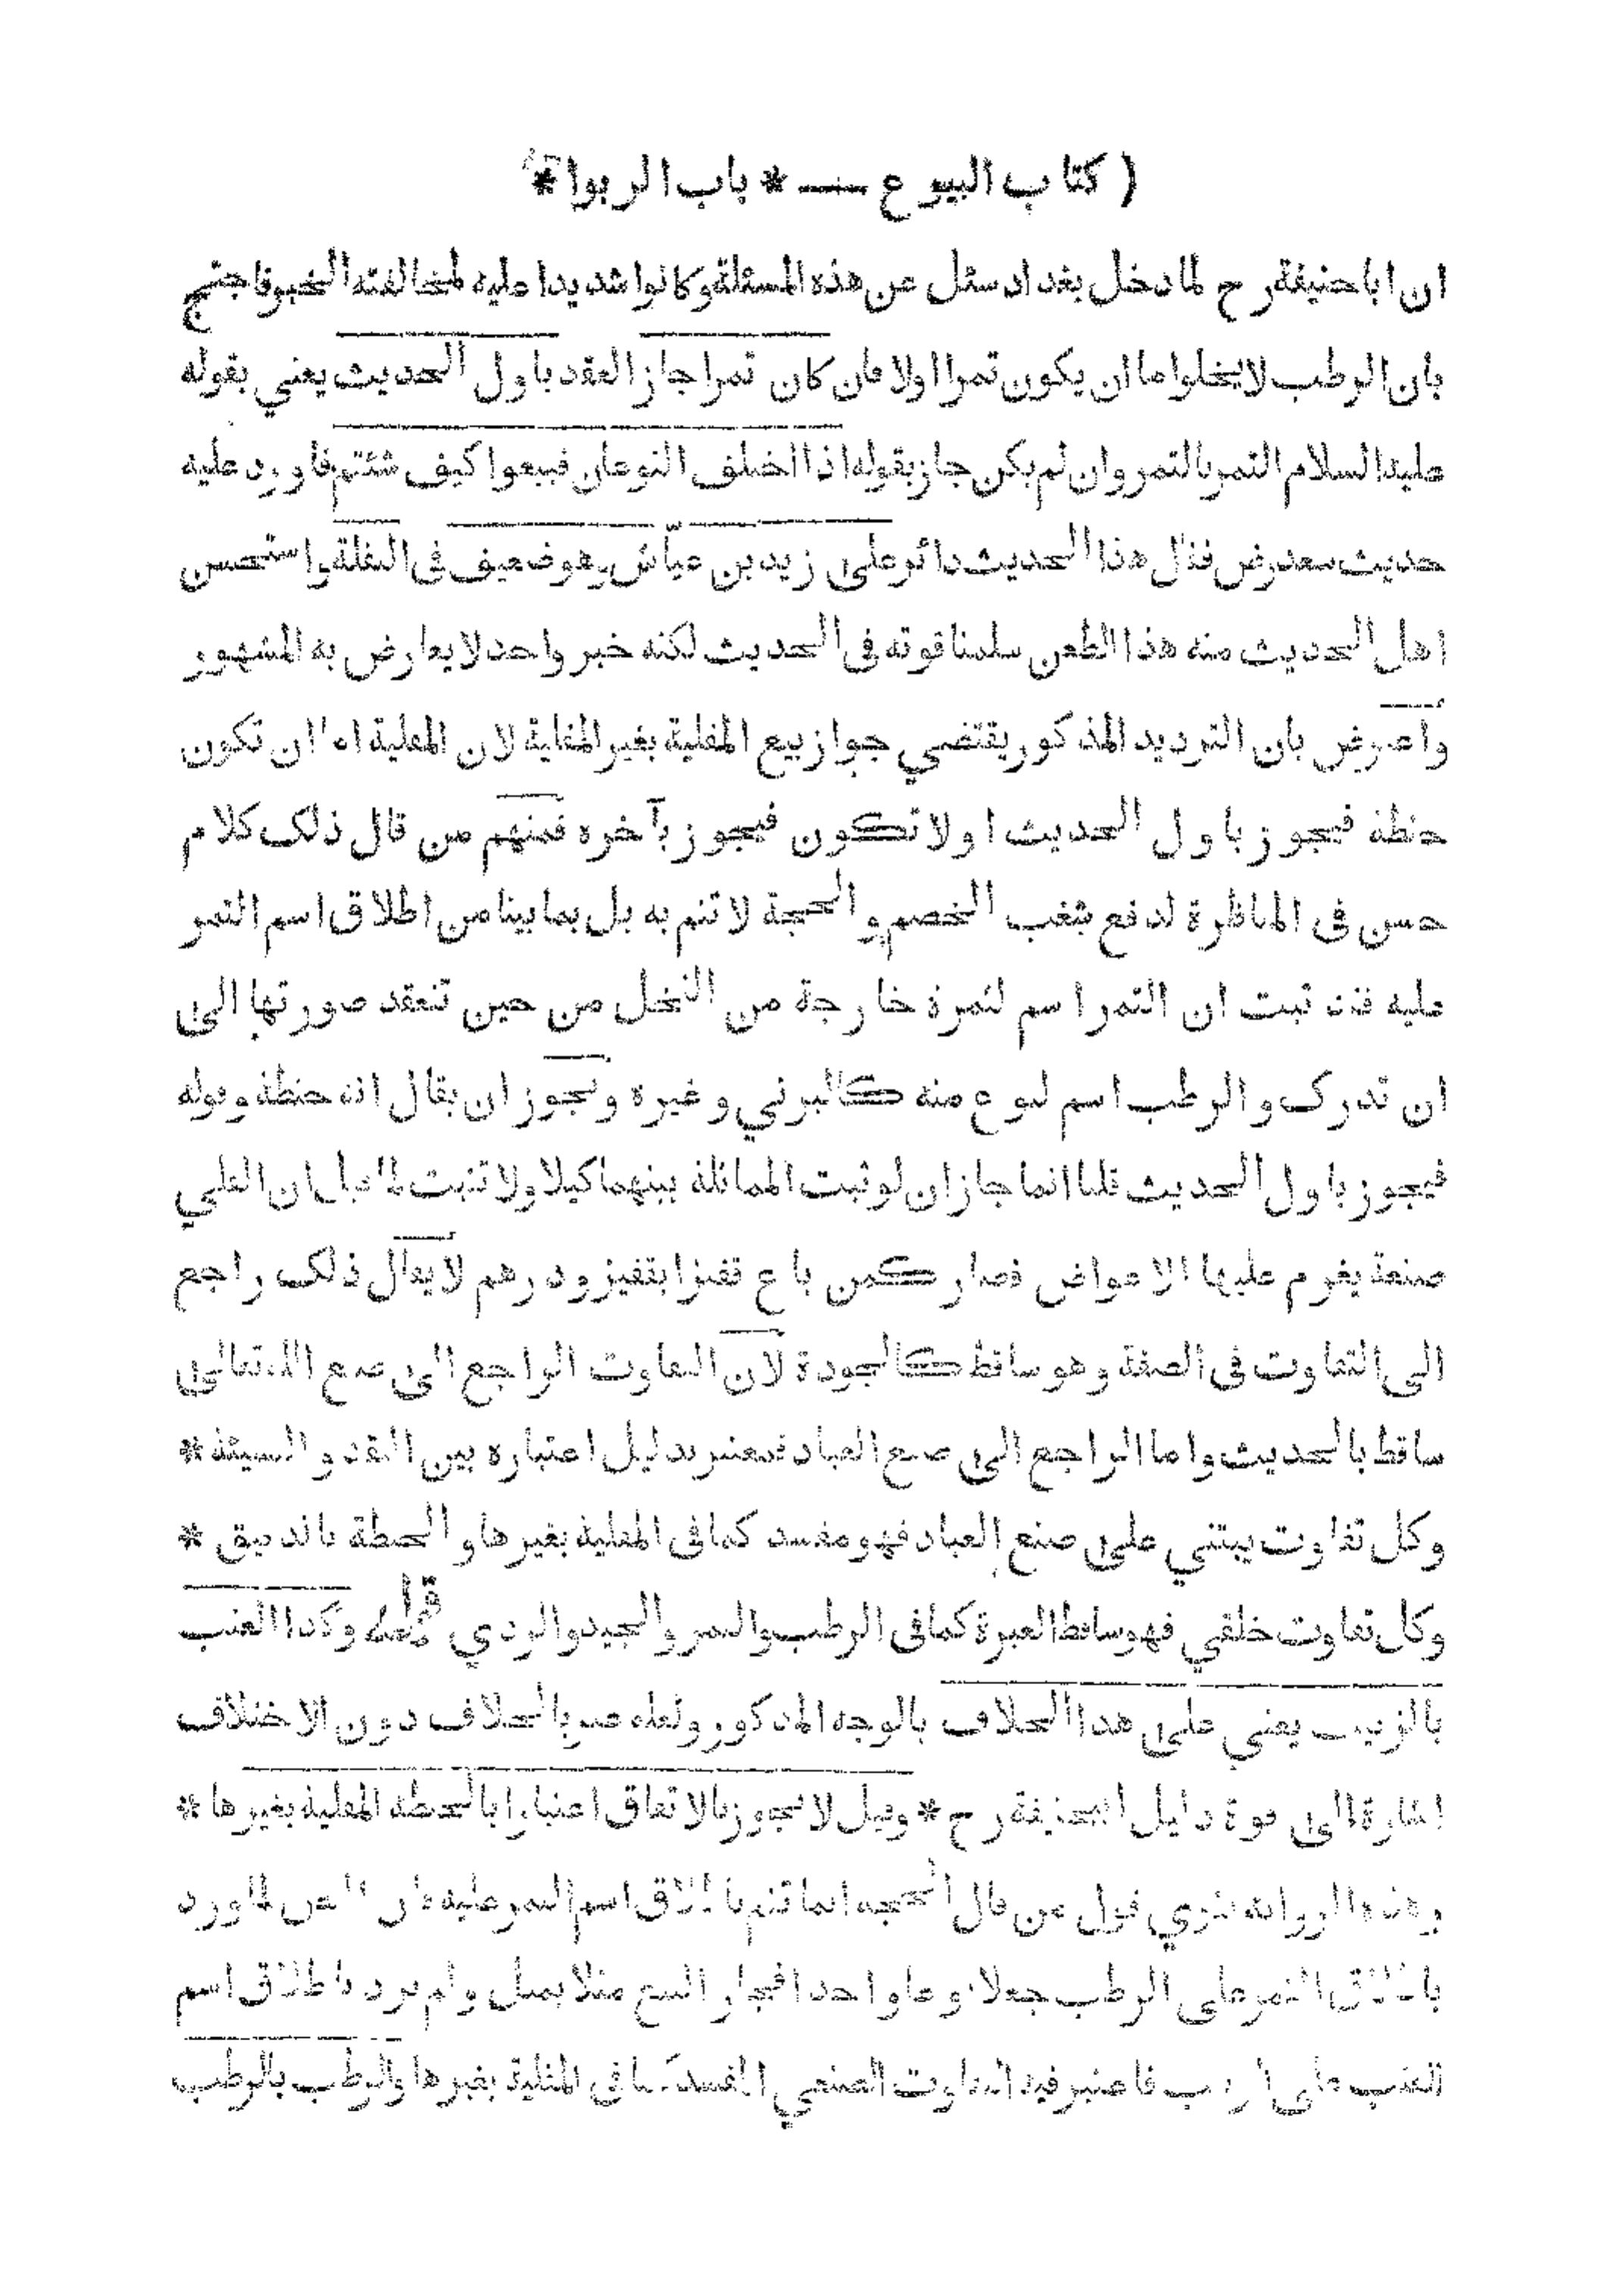 ( كتاب البيوع — * باب الربوا *
ان ابا حنيفة رح لما دخل بغداد سئل عن هذه المسئلة وكانوا شديدا عليه لمخالفته الخبر فاحتج
بان الرطب لا يخلوا ما ان يكون تمرا اولا فان كان تمرا جاز العقد باول الحديث يعني بقوله
عليه السلام التمر بالتمر وان لم يكن جاز بقوله اذا اختلف النوعان فبيعوا كيف شئتم فاورد عليه
حديث سعد رض فقال هذا الحديث دائر على زيد بن عياش وهو ضعيف في النقلة واستحسن
اهل الحديث منه هذا الطعن سلمنا قوته في الحديث لكنه خبر واحد لا يعارض به المشهور
واعترض بان الترديد المذكور يقتضي جواز بيع المقلية بغير المقلية لان المقلية اما ان تكون
حنطة فيجوز باول الحديث او لا تكون فيجوز بآخره فمنهم من قال ذلك كلام
حسن في المناظرة لدفع شغب الخصم والحجة لا تتم به بل بما بينا من اطلاق اسم التمر
عليه فقد ثبت ان التمر اسم لثمرة خارجة من النخل من حين تنعقد صورتها الى
ان تدرك والرطب اسم لنوع منه كالبرني وغيره ويجوز ان يقال انه حنطة وقوله
فيجوز باول الحديث قلنا انما جاز ان لو ثبت المماثلة بينهما كيلا ولا تثبت لما قيل ان القلي
صنعة يغرم عليها الاعواض فصار كمن باع قفيزا بقفيز ودرهم لا يقال ذلك راجع
الى التفاوت في الصفة وهو ساقط كالجودة لان التفاوت الراجع الى صنع الله تعالى
ساقط بالحديث واما الراجع الى صنع العباد فمعتبر بدليل اعتباره بين النقد والنسيئة *
وكل تفاوت يبتني على صنع العباد فهو مفسد كما في المقلية بغيرها والحنطة بالدقيق *
وكل تفاوت خلقي فهو ساقط العبرة كما في الرطب والتمر والجيد والردي قوله وكذا العنب
بالزبيب يعني على هذا الخلاف بالوجه المذكور ولعله عبر بالخلاف دون الاختلاف
اشارة الى قوة دليل ابيحنيفة رح * وقيل لا يجوز بالاتفاق اعتبارا بالحنطة المقلية بغيرها *
وهذه الرواية تقوي قول من قال الحجة انما تتم باطلاق اسم التمر عليه فان النص لما ورد
باطلاق التمر على الرطب جعلا نوعا واحدا فجاز البيع مثلا بمثل ولم يرد باطلاق اسم
العنب على الزبيب فاعتبر فيه التفاوت الصنعي المفسد كما في المقلية بغيرها والرطب بالرطب